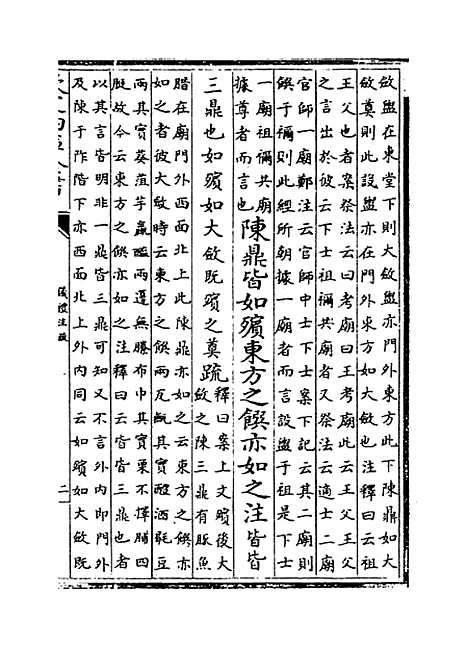 斂盥在東堂下則大斂盥亦門外東方此下陳鼎如大
斂奠則此設盥亦在門外東方如大斂也注釋曰云祖
王父也者案祭法云曰考廟曰王考廟此云王父王父
之言出於彼云下士祖禰共廟者又祭法云適士二廟
官師一廟鄭注云官師中士下士案下記云其二廟則
饌于禰則此經所朝據一廟者而言設盥于祖是下士
一廟祖禰共廟
據尊者而言也
陳鼎皆如殯東方之饌亦如之注皆皆
三鼎也如殯如大斂既殯之奠疏
釋曰案上文殯後大
斂之陳三鼎有豚魚
腊在廟門外西面北上此陳鼎亦如之云東方之饌亦
如之者彼大斂時云東方之饌兩瓦甒其實醴酒毼豆
兩其實葵菹芋蠃醢兩籩無縢布巾其實栗不擇脯四
脡故今云東方之饌亦如之注釋曰云皆皆三鼎也者
以其言皆明非一鼎皆三鼎可知又不言外內即門外
及陳于阼階下亦西面北上外內同云如殯如大斂既
儀禮注疏
二